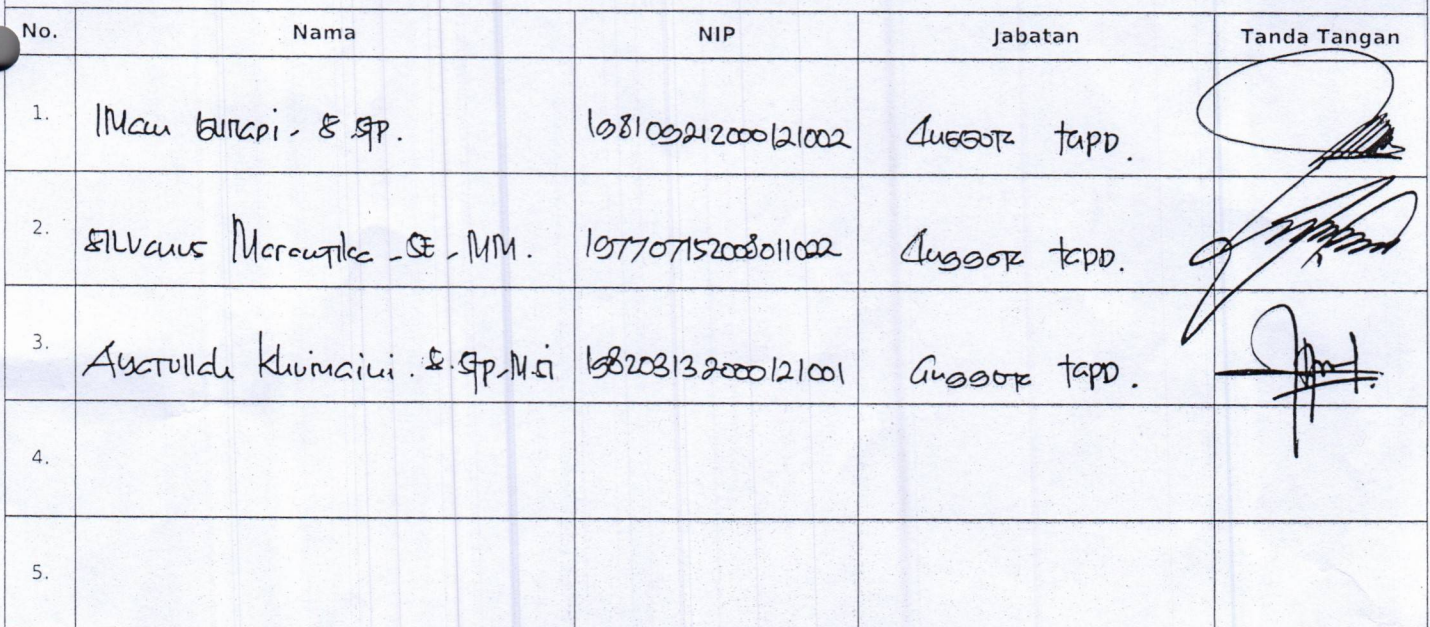 No. Nama NIP Jabatan Tanda Tangan
1. Imam 198109212000121002 Anggota TAPD.
2. Silvanus SE - MM. 197707152008011022 Anggota TAPD.
3. Ayatullah Khumaini. S.STP, M.Si 198203132000121001 Anggota TAPD.
4.
5.